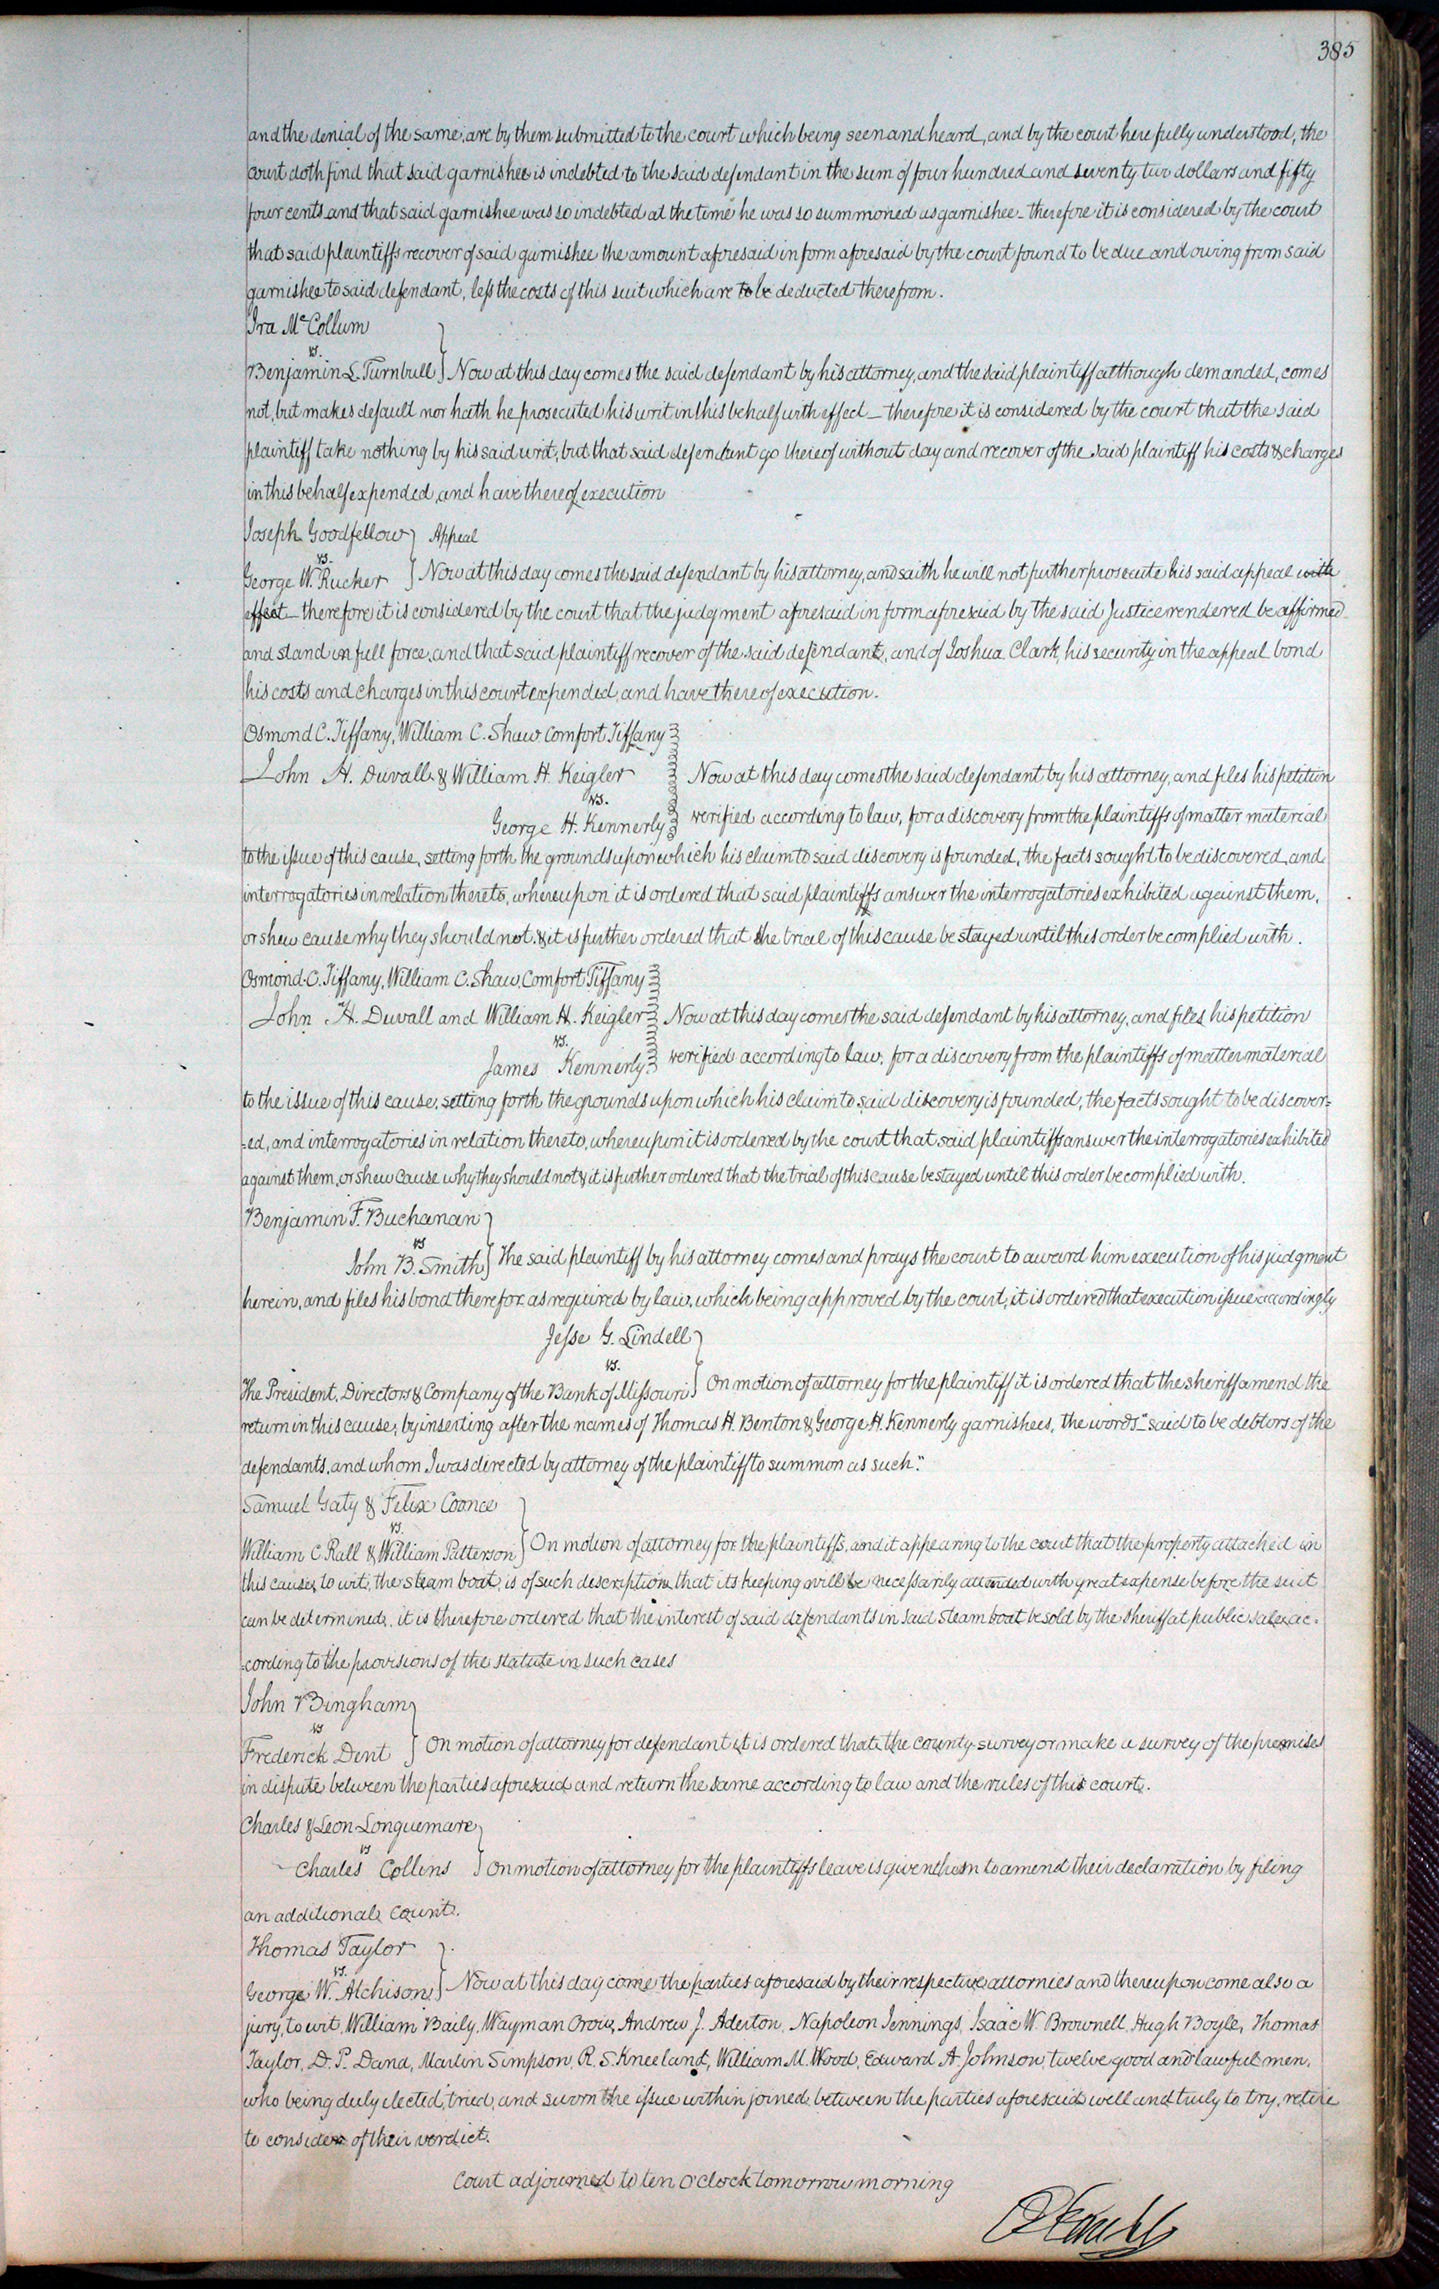 385
and the denial of the same, are by them submitted to the court which being seen and heard, and by the court here fully understood, the
court doth find that said garnishee is indebted to the said defendant in the sum of four hundred and seventy two dollars and fifty
four cents and that said garnishee was so indebted at the time he was so summoned as garnishee - therefore it is considered by the court
that said plaintiffs recover of said garnishee the amount aforesaid in form aforesaid by the court found to be due and owing from said
garnishee to said defendant, less the costs of this suit which are to be deducted therefrom.
Ira McCollum
vs.
Benjamin L. Turnbull } Now at this day comes the said defendant by his attorney, and the said plaintiff although demanded, comes
not, but makes default nor hath he prosecuted his writ in this behalf with effect - therefore it is considered by the court that the said
plaintiff take nothing by his said writ, but that said defendant go thereof without day and recover of the said plaintiff his costs & charges
in this behalf expended, and have thereof execution
Joseph Goodfellow } Appeal
vs.
George W. Rucker } Now at this day comes the said defendant by his attorney, and saith he will not further prosecute his said appeal with
effect - therefore it is considered by the court that the judgment aforesaid in form aforesaid by the said Justice rendered be affirmed
and stand in full force, and that said plaintiff recover of the said defendant, and of Joshua Clark, his security in the appeal bond
his costs and charges in this court expended, and have thereof execution.
Osmond C. Tiffany, William C. Shaw Comfort Tiffany
John H. Duvall & William H. Keigler } Now at this day comes the said defendant by his attorney, and files his petition
vs.
George H. Kennerly verified according to law, for a discovery from the plaintiffs of matter material
to the issue of this cause, setting forth the grounds upon which his claim to said discovery is founded, the facts sought to be discovered, and
interrogatories in relation thereto, whereupon it is ordered that said plaintiffs answer the interrogatories exhibited against them,
or shew cause why they should not. & it is further ordered that the trial of this cause be stayed until this order be complied with.
Osmond C. Tiffany, William C. Shaw, Comfort Tiffany
John H. Duvall and William H. Keigler } Now at this day comes the said defendant by his attorney, and files his petition
vs.
James Kennerly verified according to law, for a discovery from the plaintiffs of matter material
to the issue of this cause, setting forth the grounds upon which his claim to said discovery is founded, the facts sought to be discover=
=ed, and interrogatories in relation thereto, whereupon it is ordered by the court that said plaintiffs answer the interrogatories exhibited
against them, or shew cause why they should not & it is further ordered that the trial of this cause be stayed until this order be complied with.
Benjamin F. Buchanan
vs
John B. Smith } The said plaintiff by his attorney comes and prays the court to award him execution of his judgment
herein, and files his bond therefor as required by law, which being approved by the court, it is ordered that execution issue accordingly
Jesse G. Lindell
vs.
The President, Directors & Company of the Bank of Missouri } On motion of attorney for the plaintiff it is ordered that the sheriff amend the
return in this cause, by inserting after the names of Thomas H. Benton & George H. Kennerly garnishees, the words "said to be debtors of the
defendants, and whom I was directed by attorney of the plaintiff to summon as such."
Samuel Gaty & Felix Coonce
vs.
William C Rall & William Patterson } On motion of attorney for the plaintiffs, and it appearing to the court that the property attached in
this cause, to wit, the steam boat, is of such description that its keeping will be necessarily attended with great expense before the suit
can be determined, it is therefore ordered that the interest of said defendants in said steam boat be sold by the sheriff at public sale, ac=
=cording to the provisions of the statute in such cases
John Bingham
vs
Frederick Dent } On motion of attorney for defendant it is ordered that the county surveyor make a survey of the premises
in dispute between the parties aforesaid and return the same according to law and the rules of this court.
Charles & Leon Longuemare
vs
Charles Collins } On motion of attorney for the plaintiffs leave is given them to amend their declaration by filing
an additional count.
Thomas Taylor
vs.
George W. Atchison } Now at this day come the parties aforesaid by their respective attornies and thereupon come also a
jury, to wit, William Baily, Wayman Crow, Andrew J. Aderton, Napoleon Jennings, Isaac W. Brownell, Hugh Boyle, Thomas
Taylor, D. P. Dana, Martin Simpson, R. S. Kneeland, William M. Wood, Edward A. Johnson, twelve good and lawful men,
who being duly elected, tried, and sworn the issue within joined between the parties aforesaid well and truly to try, retire
to consider of their verdict.
Court adjourned to ten O'clock tomorrow morning